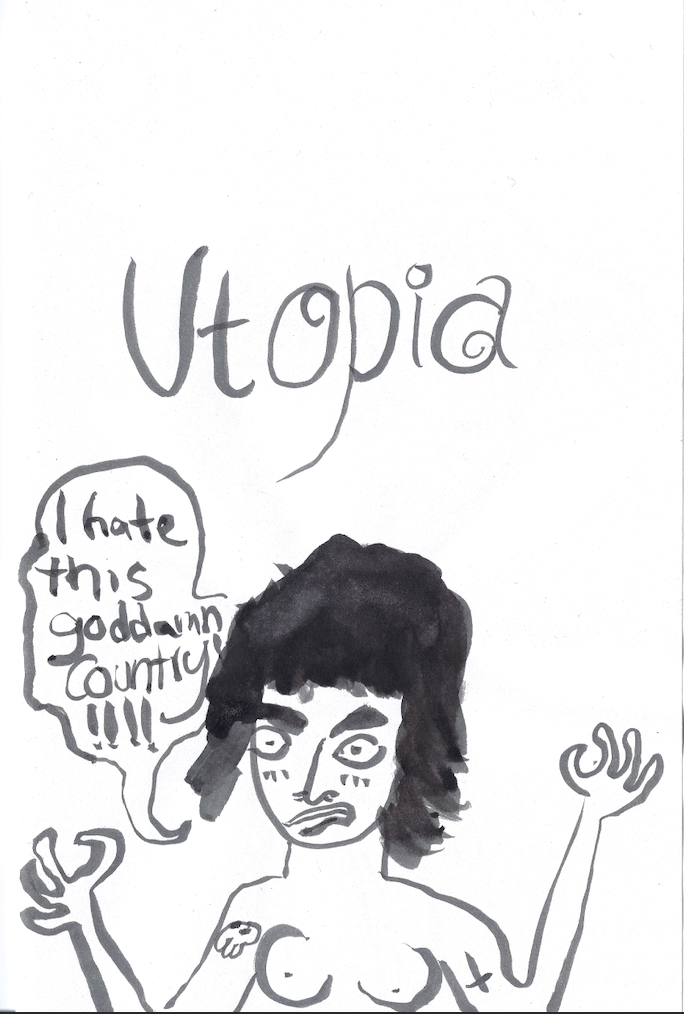 Utopia
I hate
this
goddamn
country!
!!!!